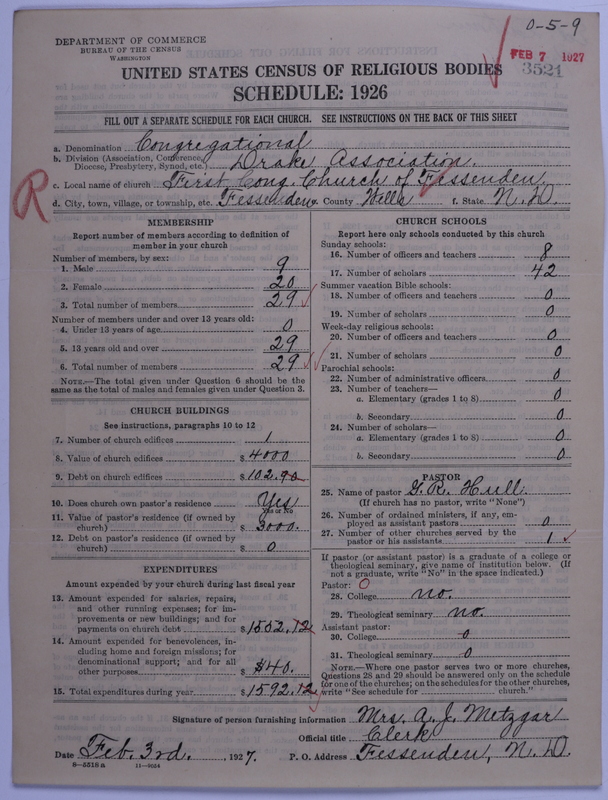 0-5-9
DEPARTMENT OF COMMERCE
BUREAU OF THE CENSUS
WASHINGTON
FEB 7 1927
3521
UNITED STATES CENSUS OF RELIGIOUS BODIES
SCHEDULE: 1926
FILL OUT A SEPARATE SCHEDULE FOR EACH CHURCH. SEE INSTRUCTIONS ON THE BACK OF THIS SHEET
a. Denomination Congregational
b. Division (Association, Conference, Diocese, Presbytery, Synod, etc.) Drake Association.
R
c. Local name of church First Cong. Church of Fessenden
d. City, town, village, or township, etc. Fessenden County Wells f. State N. D.
MEMBERSHIP
Report number of members according to definition of
member in your church
Number of members, by sex:
1. Male 9
2. Female 20
3. Total number of members 29
Number of members under and over 13 years old:
4. Under 13 years of age 0
5. 13 years old and over 29
6. Total number of members 29
NOTE.—The total given under Question 6 should be
same as the total of males and females given under Question 3.
CHURCH BUILDINGS
See instructions, paragraphs 10 to 12
7. Number of church edifices 1
8. Value of church edifices $ 4000
9. Debt on church edifices $ 102.90
10. Does church own pastor's residence Yes
Yes or No
11. Value of pastor's residence (if owned by
church) $ 3000.
12. Debt on pastor's residence (if owned by
church) $ 0
EXPENDITURES
Amount expended by your church during last fiscal year
13. Amount expended for salaries, repairs,
and other running expenses; for im-
provements or new buildings; and for
payments on church debt $ 1552.12
14. Amount expended for benevolences, in-
cluding home and foreign missions; for
denominational support; and for all
other purposes $ $40.
15. Total expenditures during year $ 1592.12
CHURCH SCHOOLS
Report here only schools conducted by this church
Sunday schools:
16. Number of officers and teachers 8
17. Number of scholars 42
Summer vacation Bible schools:
18. Number of officers and teachers 0
19. Number of scholars 0
Week-day religious schools:
20. Number of officers and teachers 0
21. Number of scholars 0
Parochial schools:
22. Number of administrative officers 0
23. Number of teachers—
a. Elementary (grades 1 to 8) 0
b. Secondary 0
24. Number of scholars—
a. Elementary (grades 1 to 8) 0
b. Secondary 0
PASTOR
25. Name of pastor G. R. Hull
(If church has no pastor, write "None")
26. Number of ordained ministers, if any, em-
ployed as assistant pastors 0
27. Number of other churches served by the
pastor or his assistants 1
If pastor (or assistant pastor) is a graduate of a college or
theological seminary, give name of institution below. (If
not a graduate, write "No" in the space indicated.)
Pastor: 0
28. College no.
29. Theological seminary no.
Assistant pastor:
30. College 0
31. Theological seminary 0
NOTE.—Where one pastor serves two or more churches,
Questions 28 and 29 should be answered only on the schedule
for one of the churches; on the schedules for the other churches,
write "See schedule for church."
Signature of person furnishing information Mrs. A. J. Metzgar
Official title Clerk
Date Feb. 3rd. , 1927. P. O. Address Fessenden, N. D.
8—5518a 11—9034